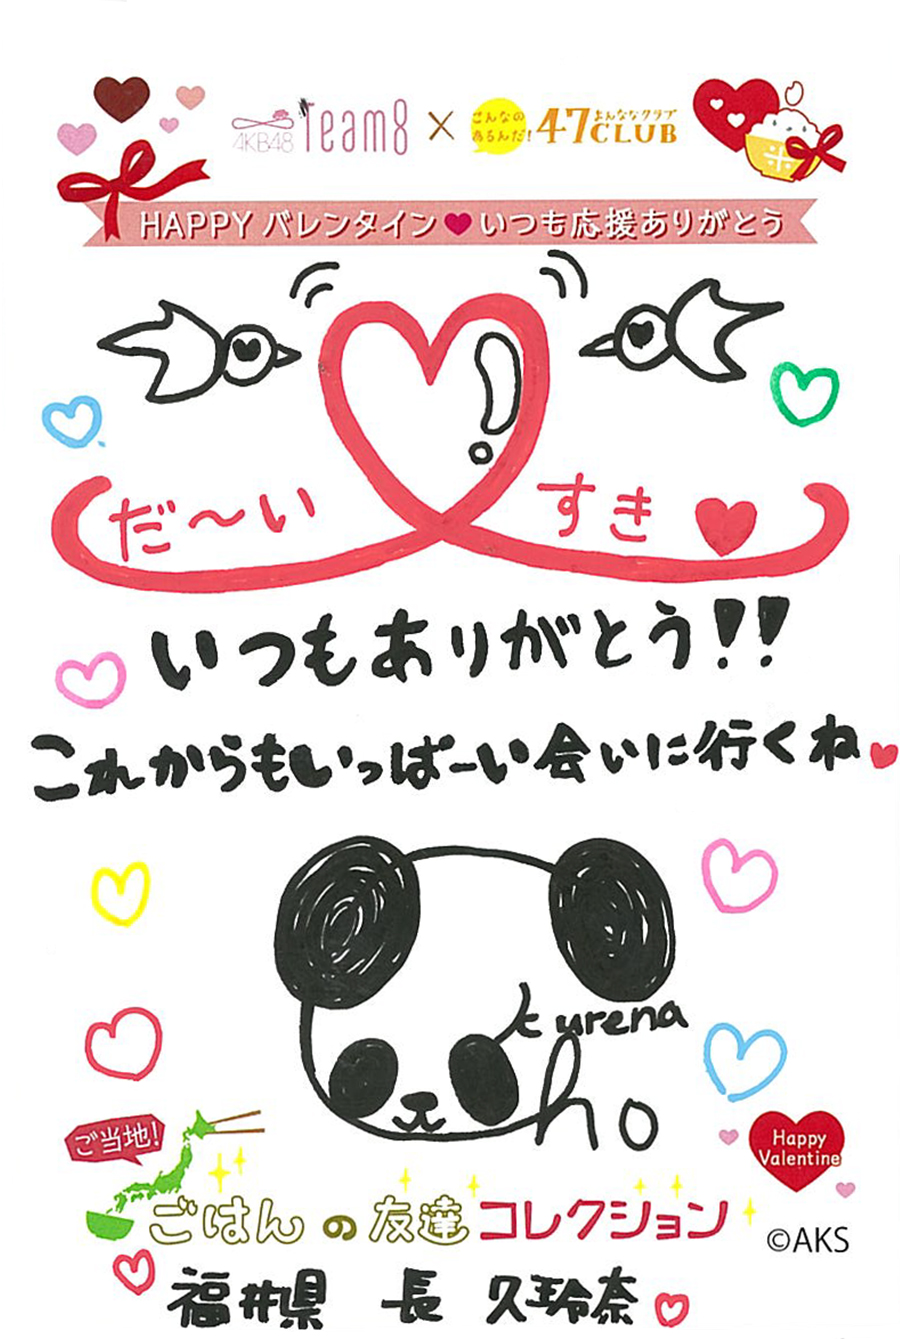 AKB48 Team8 × こんなのあるんだ! 47CLUB よんななクラブ
HAPPY バレンタイン♥いつも応援ありがとう
だ〜い すき♥
いつもありがとう!!
これからもいっぱーい会いに行くね♥
kurena
ho
ご当地!
Happy
Valentine
ごはんの友達コレクション
©AKS
福井県 長 久玲奈